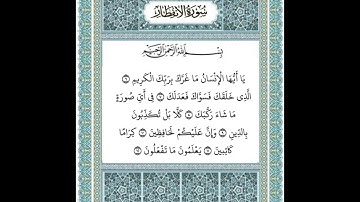 سُورَةُ الِانْفِطَارِ
بِسْمِ اللَّهِ الرَّحْمَٰنِ الرَّحِيمِ
يَا أَيُّهَا الْإِنْسَانُ مَا غَرَّكَ بِرَبِّكَ الْكَرِيمِ ۝
الَّذِي خَلَقَكَ فَسَوَّاكَ فَعَدَلَكَ ۝ فِي أَيِّ صُورَةٍ
مَا شَاءَ رَكَّبَكَ ۝ كَلَّا بَلْ تُكَذِّبُونَ
بِالدِّينِ ۝ وَإِنَّ عَلَيْكُمْ لَحَافِظِينَ ۝ كِرَامًا
كَاتِبِينَ ۝ يَعْلَمُونَ مَا تَفْعَلُونَ ۝